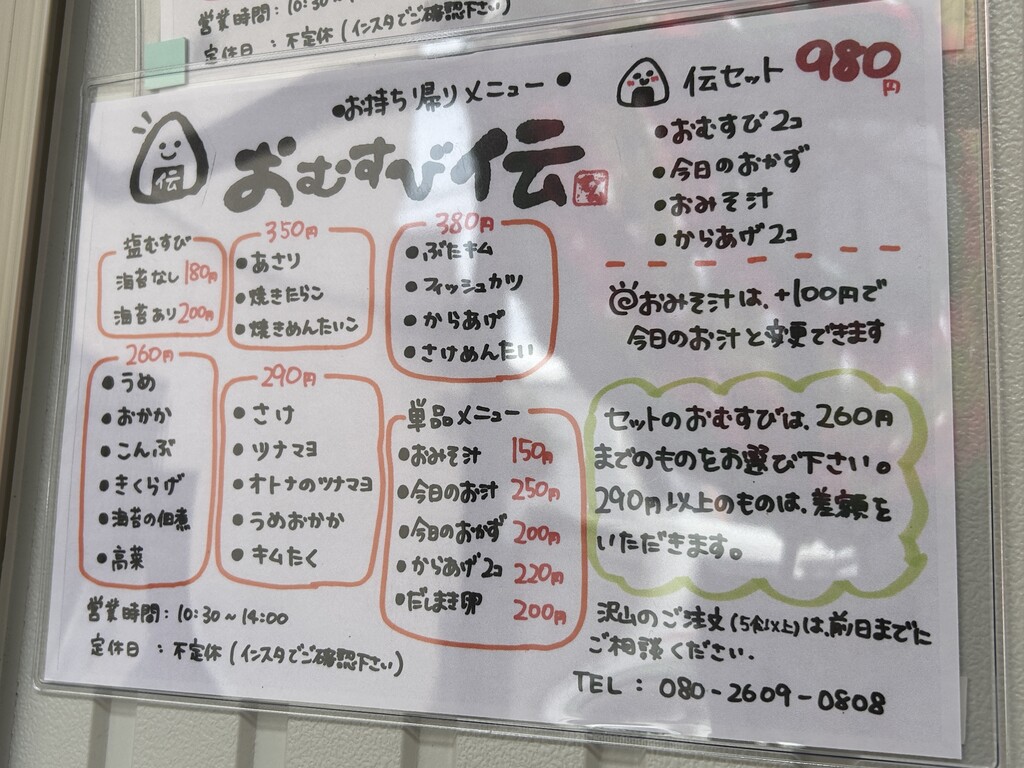 営業時間：10:30～
定休日：不定休(インスタでご確認下さい)
•お持ち帰りメニュー•
伝
おむすび伝
塩むすび
海苔なし 180円
海苔あり 200円
350円
•あさり
•焼きたらこ
•焼きめんたいこ
380円
•ぶたキム
•フィッシュカツ
•からあげ
•さけめんたい
260円
•うめ
•おかか
•こんぶ
•きくらげ
•海苔の佃煮
•高菜
290円
•さけ
•ツナマヨ
•オトナのツナマヨ
•うめおかか
•キムたく
単品メニュー
•おみそ汁 150円
•今日のお汁 250円
•今日のおかず 200円
•からあげ2コ 220円
•だしまき卵 200円
営業時間：10:30～14:00
定休日：不定休(インスタでご確認下さい)
伝セット 980円
•おむすび2コ
•今日のおかず
•おみそ汁
•からあげ2コ
おみそ汁は、+100円で
今日のお汁と変更できます
セットのおむすびは、260円
までのものをお選び下さい。
290円以上のものは、差額を
いただきます。
沢山のご注文(5個以上)は、前日までに
ご相談ください.
TEL：080-2609-0808